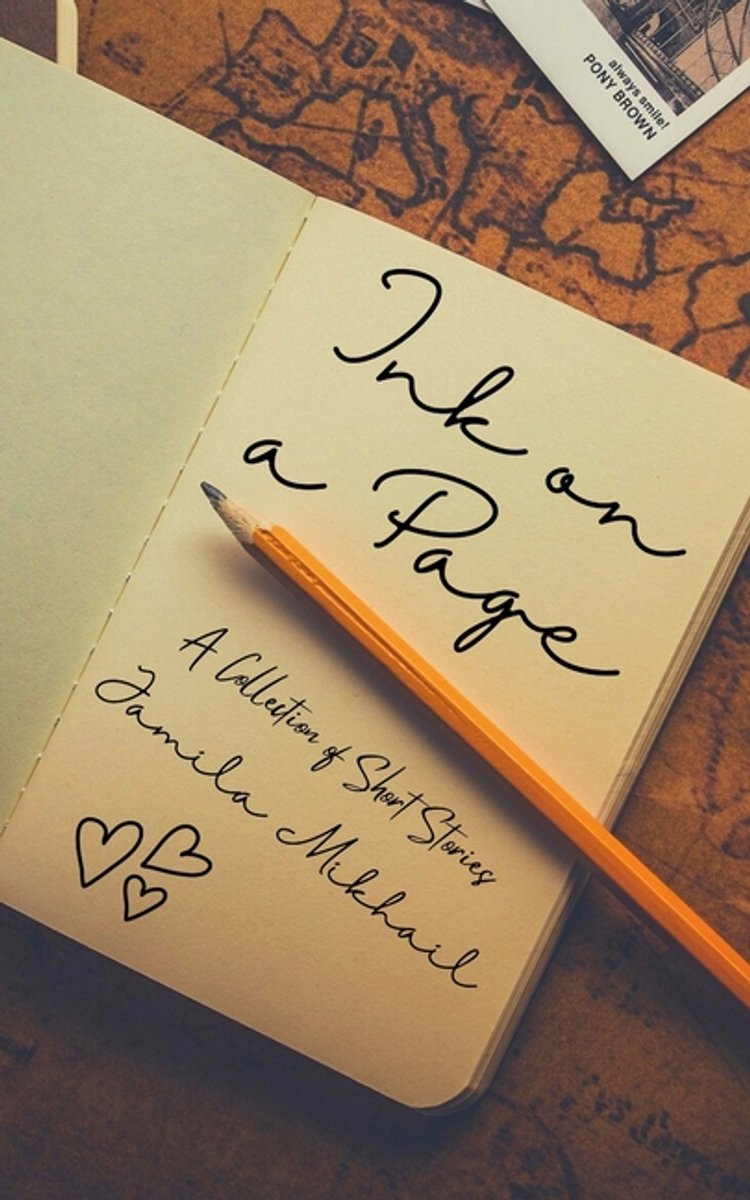 always smile!
PONY BROWN
Ink on
a Page
A Collection of Short Stories
Jamila Mikhail